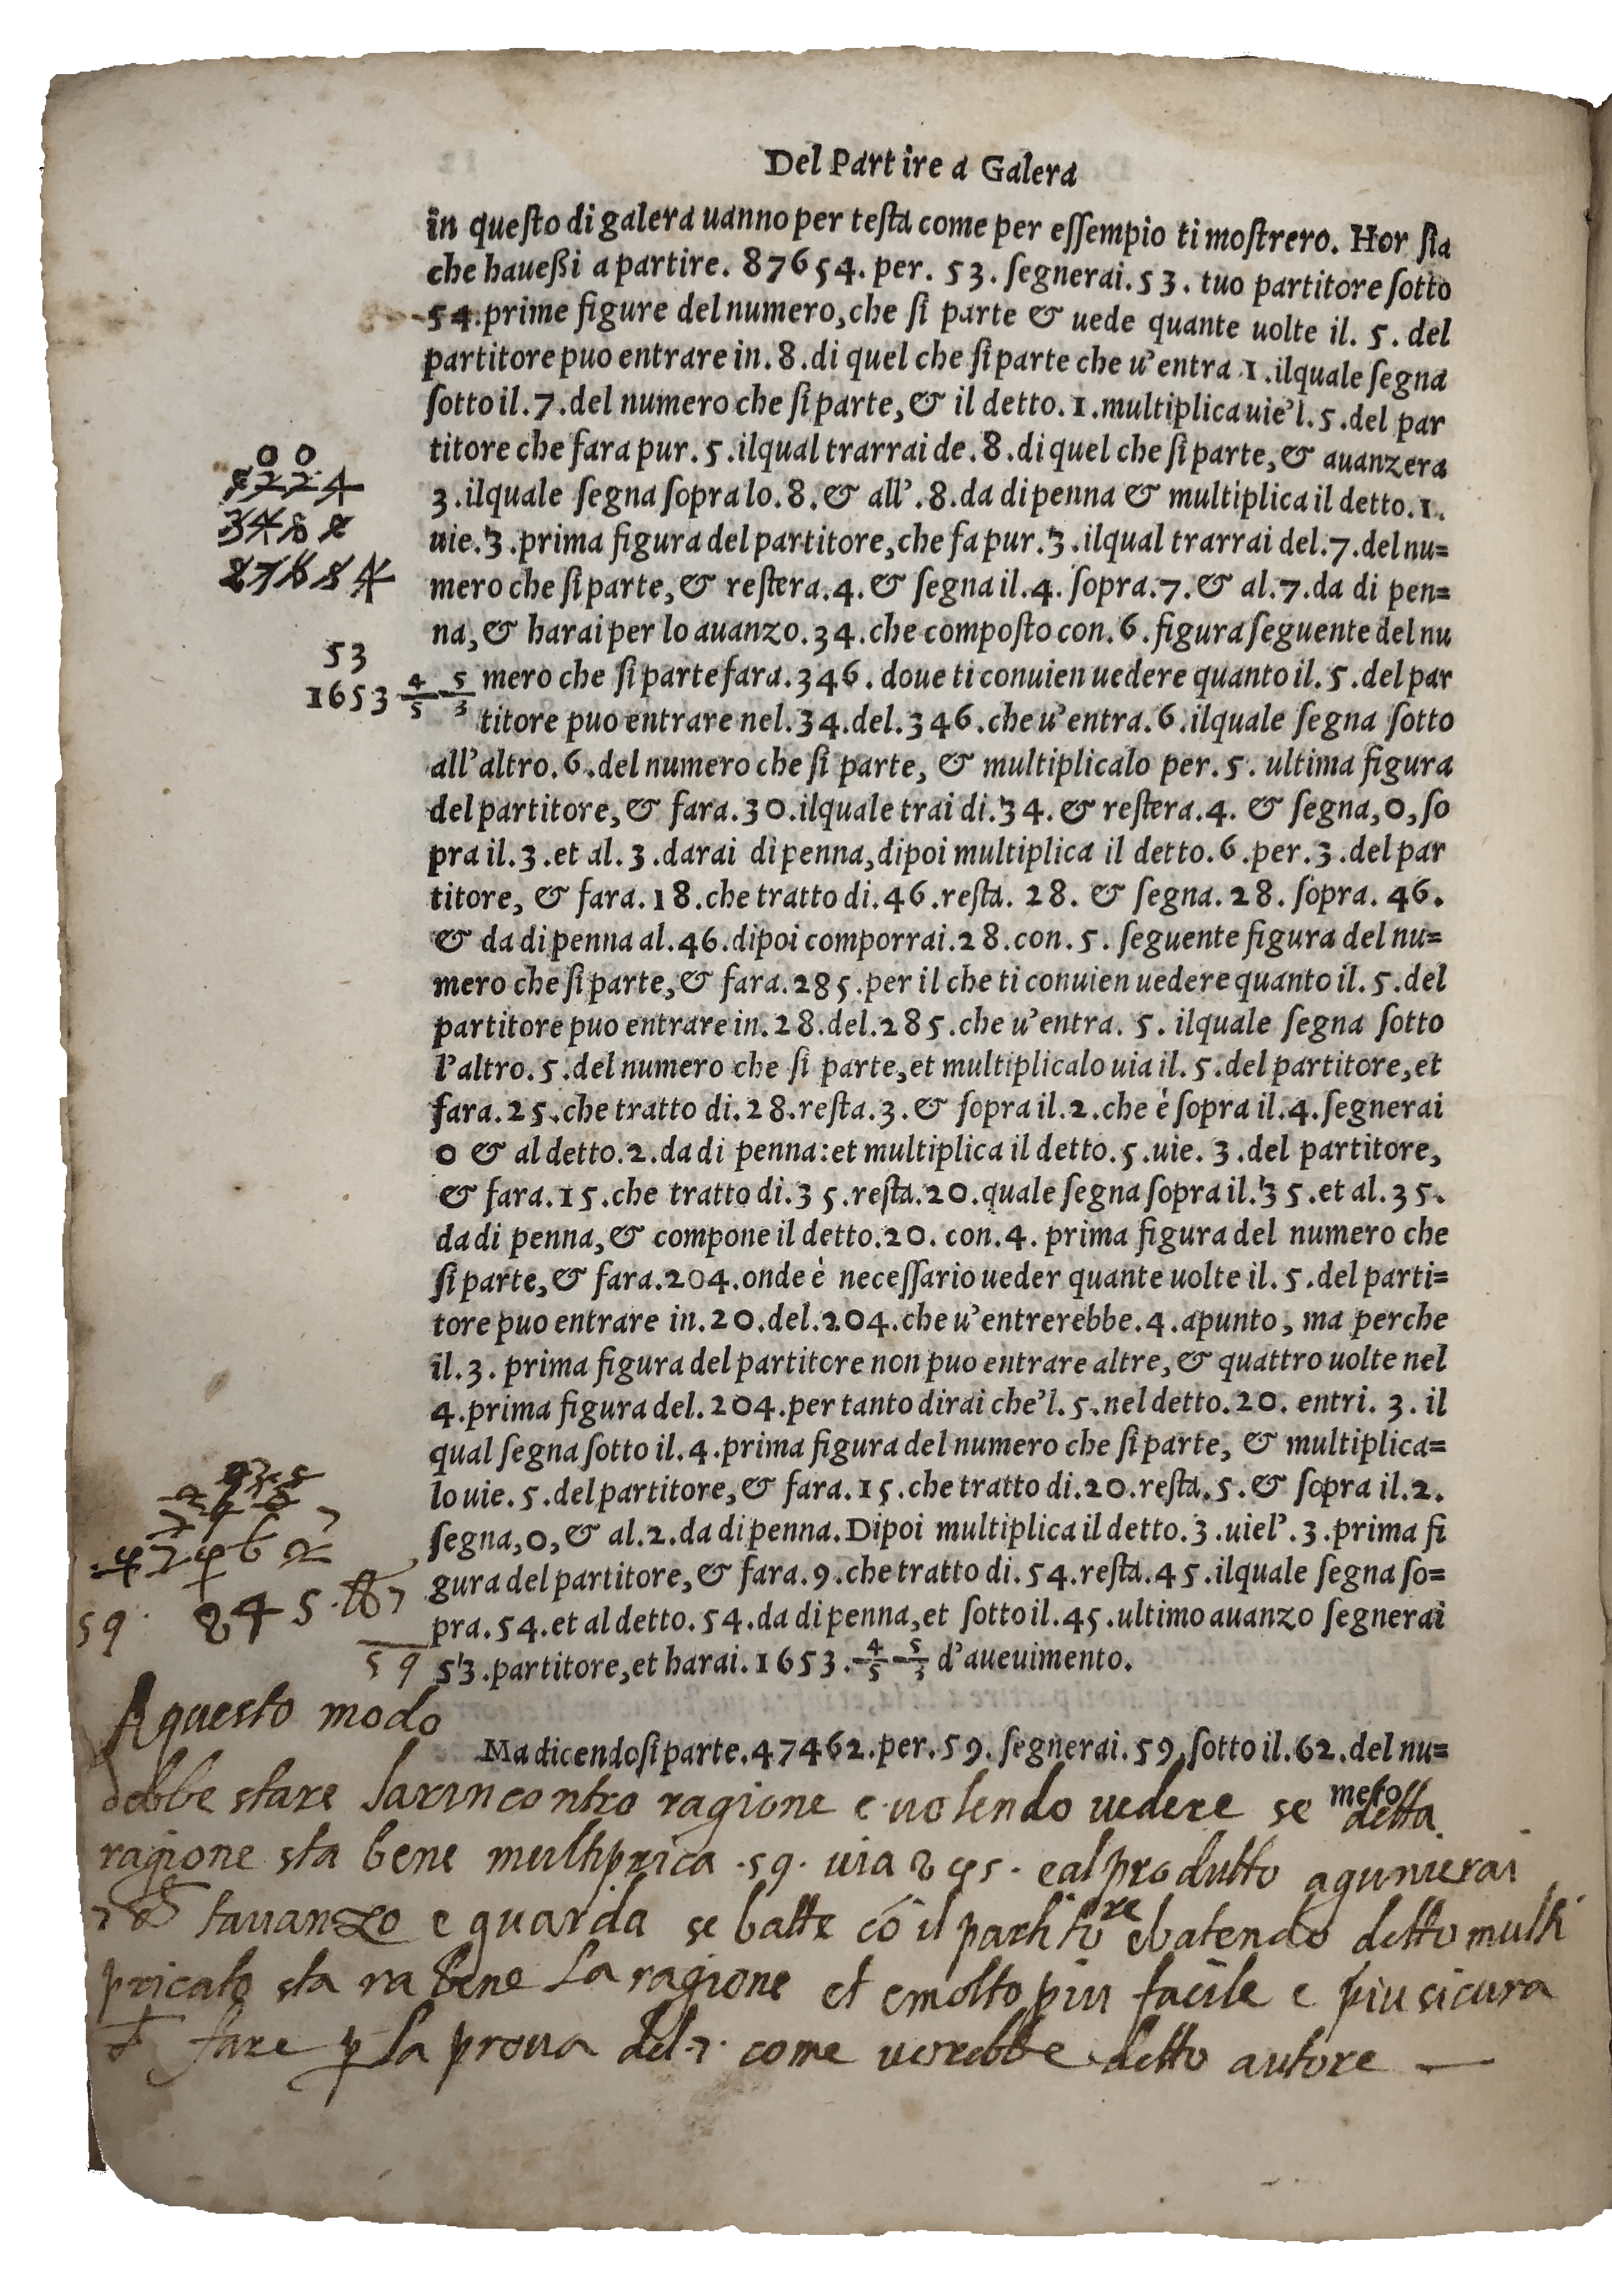 Del Partire a Galera
in queſto di galera uanno per teſta come per eſſempio ti moſtrero. Hor ſia
che haueßi a partire. 87654. per. 53. ſegnerai. 53. tuo partitore ſotto
54. prime figure del numero, che ſi parte & uede quante uolte il. 5. del
partitore puo entrare in. 8. di quel che ſi parte che u'entra 1. ilquale ſegna
ſotto il. 7. del numero che ſi parte, & il detto. 1. multiplica uie'l. 5. del par
titore che fara pur. 5. ilqual trarrai de. 8. di quel che ſi parte, & auanzera
3. ilquale ſegna ſopra lo. 8. & all'. 8. da di penna & multiplica il detto. 1.
uie. 3. prima figura del partitore, che fa pur. 3. ilqual trarrai del. 7. del nu=
mero che ſi parte, & reſtera. 4. & ſegna il. 4. ſopra. 7. & al. 7. da di pen=
na, & harai per lo auanzo. 34. che compoſto con. 6. figura ſeguente del nu
mero che ſi parte fara. 346. doue ti conuien uedere quanto il. 5. del par
titore puo entrare nel. 34. del. 346. che u'entra. 6. ilquale ſegna ſotto
all'altro. 6. del numero che ſi parte, & multiplicalo per. 5. ultima figura
del partitore, & fara. 30. ilquale trai di. 34. & reſtera. 4. & ſegna, 0, ſo
pra il. 3. et al. 3. darai di penna, dipoi multiplica il detto. 6. per. 3. del par
titore, & fara. 18. che tratto di. 46. reſta. 28. & ſegna. 28. ſopra. 46.
& da di penna al. 46. dipoi comporrai. 28. con. 5. ſeguente figura del nu=
mero che ſi parte, & fara. 285. per il che ti conuien uedere quanto il. 5. del
partitore puo entrare in. 28. del. 285. che u'entra. 5. ilquale ſegna ſotto
l'altro. 5. del numero che ſi parte, et multiplicalo uia il. 5. del partitore, et
fara. 25. che tratto di. 28. reſta. 3. & ſopra il. 2. che è ſopra il. 4. ſegnerai
0 & al detto. 2. da di penna: et multiplica il detto. 5. uie. 3. del partitore,
& fara. 15. che tratto di. 35. reſta. 20. quale ſegna ſopra il. 35. et al. 35.
da di penna, & compone il detto. 20. con. 4. prima figura del numero che
ſi parte, & fara. 204. onde è neceſſario ueder quante uolte il. 5. del parti=
tore puo entrare in. 20. del. 204. che u'entrerebbe. 4. apunto, ma perche
il. 3. prima figura del partitore non puo entrare altre, & quattro uolte nel
4. prima figura del. 204. per tanto dirai che'l. 5. nel detto. 20. entri. 3. il
qual ſegna ſotto il. 4. prima figura del numero che ſi parte, & multiplica=
lo uie. 5. del partitore, & fara. 15. che tratto di. 20. reſta. 5. & ſopra il. 2.
ſegna, 0, & al. 2. da di penna. Dipoi multiplica il detto. 3. uiel'. 3. prima fi
gura del partitore, & fara. 9. che tratto di. 54. reſta. 45. ilquale ſegna ſo=
pra. 54. et al detto. 54. da di penna, et ſotto il. 45. ultimo auanzo ſegnerai
53. partitore, et harai. 1653. 4/5 5/3 d'aueuimento.
Ma dicendo ſi parte. 47462. per. 59. ſegnerai. 59. ſotto il. 62. del nu=
mero
00
224
53
1653 4/5 5/3
59
245
59
A questo modo
debbe stare larincontro ragione e volendo vedere se detta
ragione sta bene multiprica .59. via 245. e al produtto agunierai
lavanzo e guarda se batte cō il partitore ebatendo detto multi
pricato sta ra bene La ragione et e molto piu facile e piu sicura
fare p la prova del .7. come verebbe detto autore —